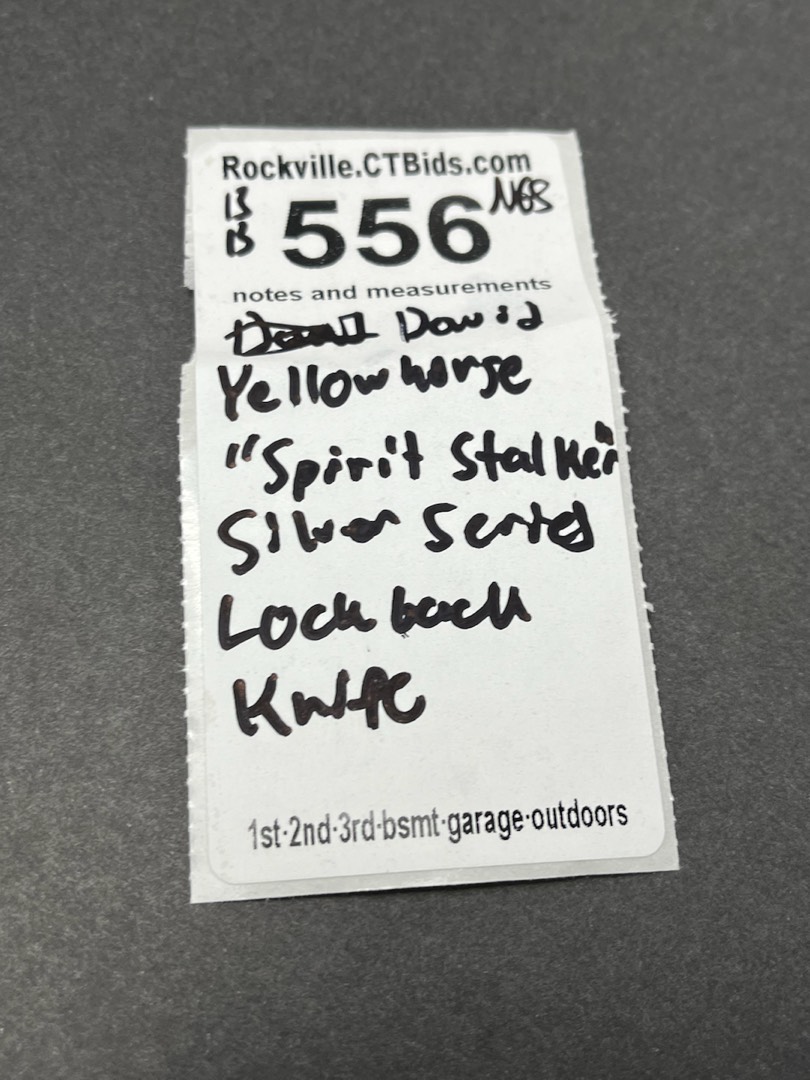 Rockville.CTBids.com
B
B
556 NGS
notes and measurements
David
Yellowhorse
"Spirit Stalker"
Silver Series
Lock back
Knife
1st·2nd·3rd·bsmt·garage·outdoors